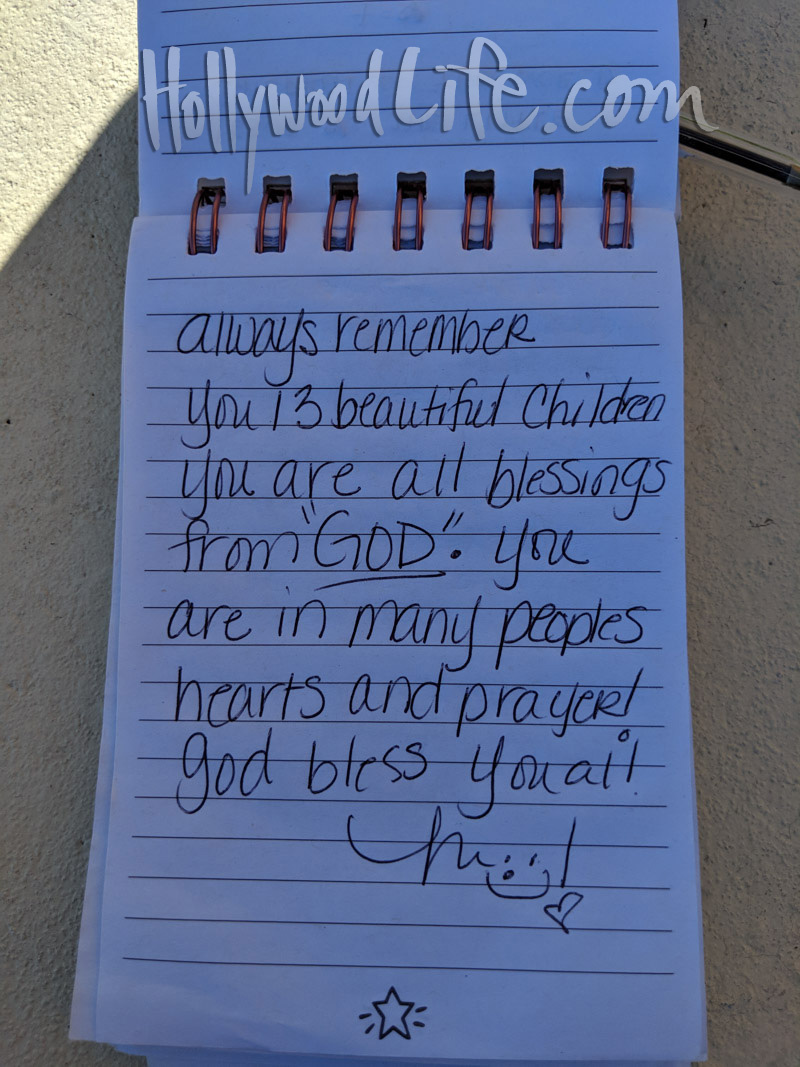 HollywoodLife.com
always remember
you 13 beautiful Children
you are all blessings
from "GOD". you
are in many peoples
hearts and prayer!
god bless you all!